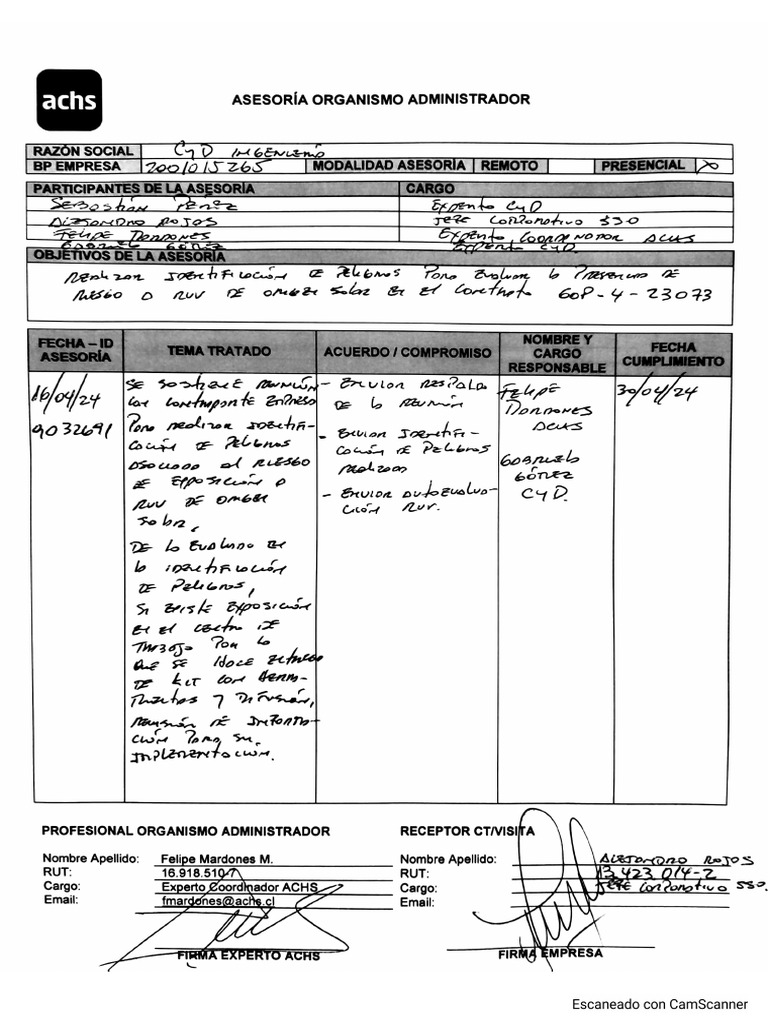 achs
ASESORÍA ORGANISMO ADMINISTRADOR
RAZÓN SOCIAL CyD INGENIERÍA
BP EMPRESA 2001015265 MODALIDAD ASESORÍA REMOTO PRESENCIAL X
PARTICIPANTES DE LA ASESORÍA CARGO
SEBASTIÁN PÉREZ EXPERTO CyD
ALEJANDRO ROJOS JEFE CORPORATIVO SSO
FELIPE MARDONES EXPERTO COORDINADOR ACHS
GABRIEL GÓMEZ EXPERTO CyD
OBJETIVOS DE LA ASESORÍA
REALIZAR IDENTIFICACIÓN DE PELIGROS PARA EVALUAR LA PRESENCIA DE
RIESGO A RUV DE ORIGEN SOLAR EN EL CONTRATO GOP-4-23073
FECHA – ID ASESORÍA
TEMA TRATADO
ACUERDO / COMPROMISO
NOMBRE Y CARGO RESPONSABLE
FECHA CUMPLIMIENTO
16/04/24
9032691
SE SOSTIENE REUNIÓN
CON CONTRAPARTE EMPRESA
PARA REALIZAR IDENTIFI-
CACIÓN DE PELIGROS
ASOCIADO AL RIESGO
DE EXPOSICIÓN A
RUV DE ORIGEN
SOLAR,
DE LO EVALUADO EN
LA IDENTIFICACIÓN
DE PELIGROS,
SI EXISTE EXPOSICIÓN
EN EL CENTRO DE
TRABAJO POR LO
QUE SE HACE ENTREGA
DE KIT CON HERRA-
MIENTAS Y DIFUSIÓN,
REVISIÓN DE INFORMA-
CIÓN PARA SU
IMPLEMENTACIÓN.
- ENVIAR RESPALDO
DE LA REUNIÓN
- ENVIAR IDENTIFI-
CACIÓN DE PELIGROS
REALIZADA
- ENVIAR AUTOEVALUA-
CIÓN RUV.
FELIPE
MARDONES
ACHS
GABRIEL
GÓMEZ
CyD.
30/04/24
PROFESIONAL ORGANISMO ADMINISTRADOR
Nombre Apellido: Felipe Mardones M.
RUT: 16.918.510-7
Cargo: Experto Coordinador ACHS
Email: fmardones@achs.cl
FIRMA EXPERTO ACHS
RECEPTOR CT/VISITA
Nombre Apellido: ALEJANDRO ROJOS
RUT: 13.423.014-2
Cargo: JEFE CORPORATIVO SSO.
Email:
FIRMA EMPRESA
Escaneado con CamScanner